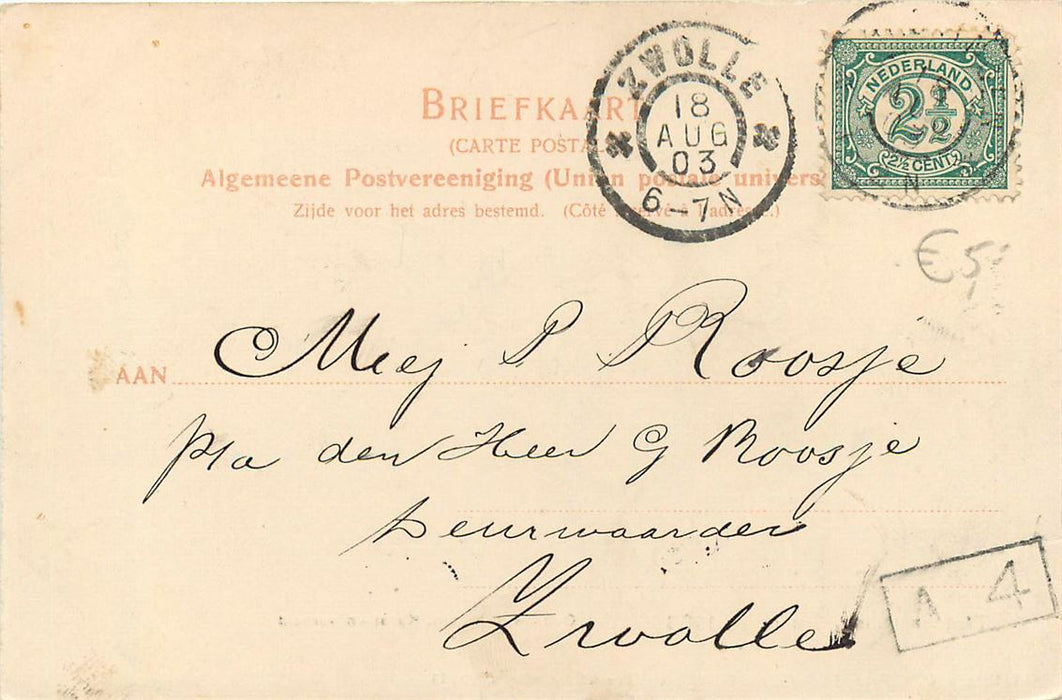 BRIEFKAART
(CARTE POSTALE)
Algemeene Postvereeniging (Union postale univers
Zijde voor het adres bestemd. (Côté à l'adresse.)
ZWOLLE
18
AUG
03
6-7N
NEDERLAND
2½
2½ CENT
N
€5
AAN Mej P Roosje
p/a den Heer G Roosje
deurwaarder
Zwolle
A 4